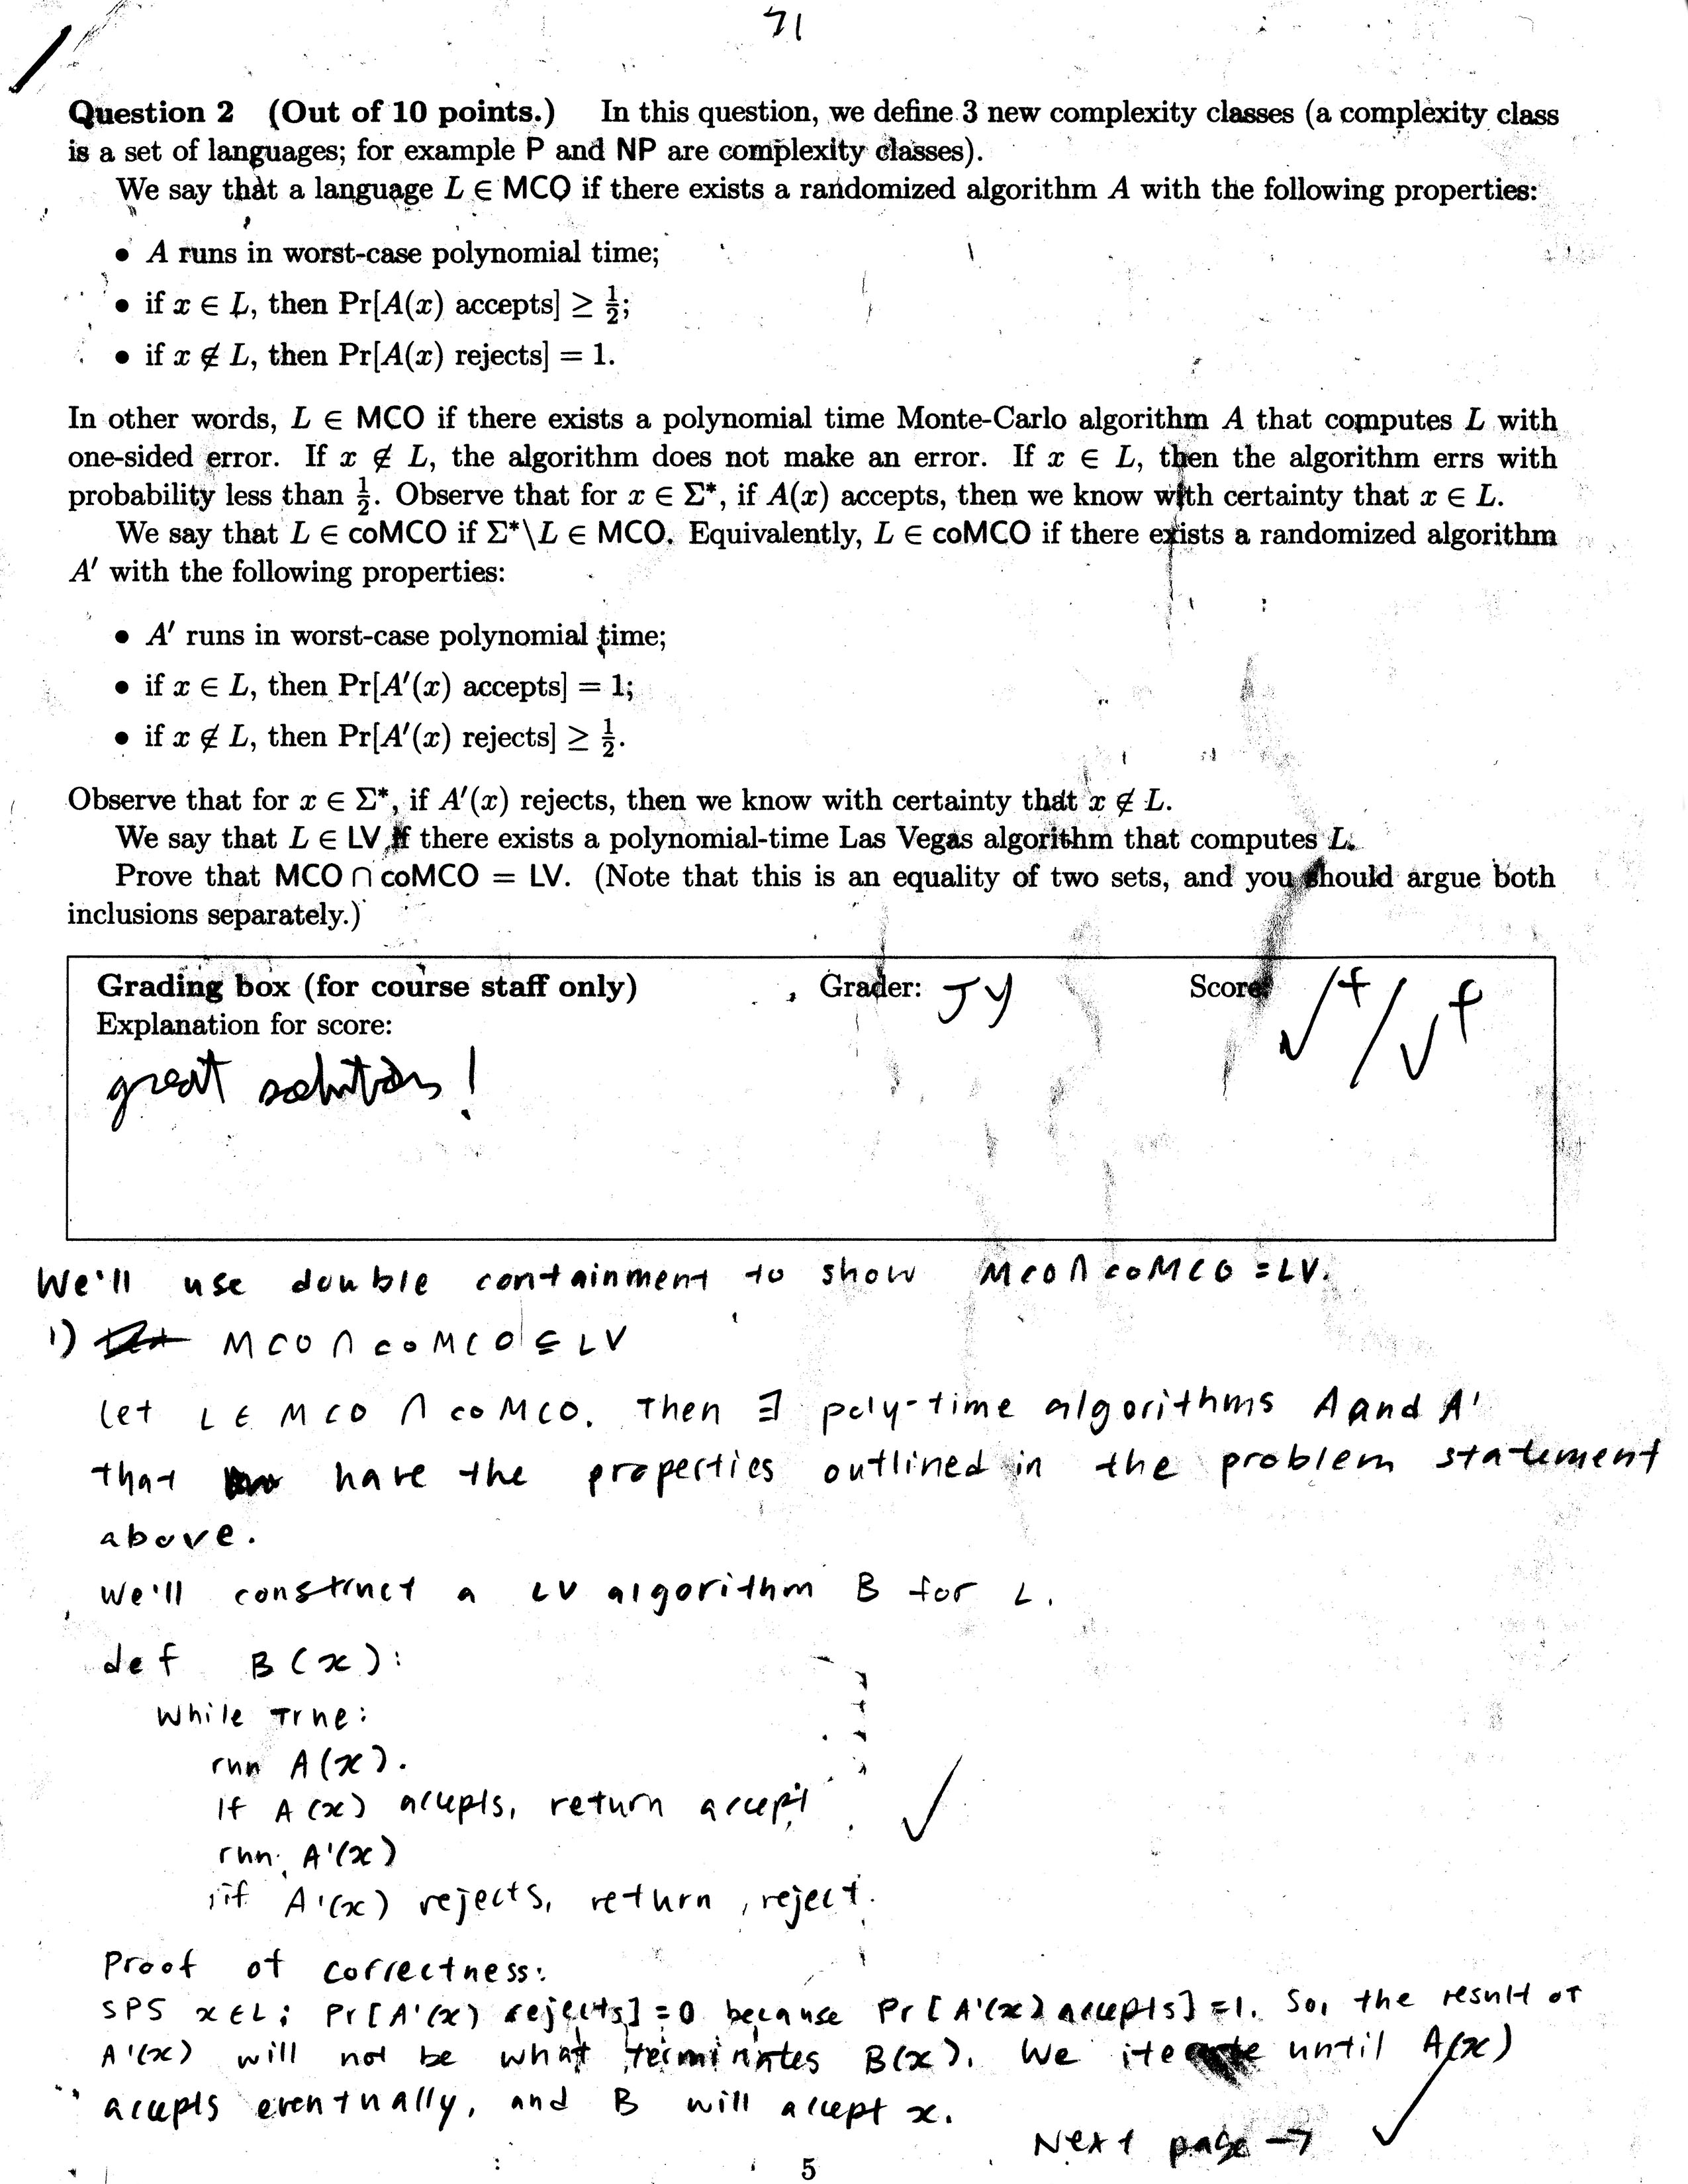 71
Question 2 (Out of 10 points.) In this question, we define 3 new complexity classes (a complexity class
is a set of languages; for example P and NP are complexity classes).
We say that a language L ∈ MCO if there exists a randomized algorithm A with the following properties:
• A runs in worst-case polynomial time;
• if x ∈ L, then Pr[A(x) accepts] ≥ 1/2;
• if x ∉ L, then Pr[A(x) rejects] = 1.
In other words, L ∈ MCO if there exists a polynomial time Monte-Carlo algorithm A that computes L with
one-sided error. If x ∉ L, the algorithm does not make an error. If x ∈ L, then the algorithm errs with
probability less than 1/2. Observe that for x ∈ Σ*, if A(x) accepts, then we know with certainty that x ∈ L.
We say that L ∈ coMCO if Σ*\L ∈ MCO. Equivalently, L ∈ coMCO if there exists a randomized algorithm
A′ with the following properties:
• A′ runs in worst-case polynomial time;
• if x ∈ L, then Pr[A′(x) accepts] = 1;
• if x ∉ L, then Pr[A′(x) rejects] ≥ 1/2.
Observe that for x ∈ Σ*, if A′(x) rejects, then we know with certainty that x ∉ L.
We say that L ∈ LV if there exists a polynomial-time Las Vegas algorithm that computes L.
Prove that MCO ∩ coMCO = LV. (Note that this is an equality of two sets, and you should argue both
inclusions separately.)
Grading box (for course staff only) Grader: JY Score ✓+/✓+
Explanation for score:
great solution!
We'll use double containment to show MCO ∩ coMCO = LV.
1) MCO ∩ coMCO ⊆ LV
Let L ∈ MCO ∩ coMCO. Then ∃ poly-time algorithms A and A'
that have the properties outlined in the problem statement
above.
We'll construct a LV algorithm B for L.
def B(x):
While True:
run A(x).
If A(x) accepts, return accept
run A'(x)
if A'(x) rejects, return reject.
Proof of correctness:
SPS x ∈ L; Pr[A'(x) rejects]=0 because Pr[A'(x) accepts]=1. So, the result of
A'(x) will not be what terminates B(x). We iterate until A(x)
accepts eventually, and B will accept x.
Next page →
5